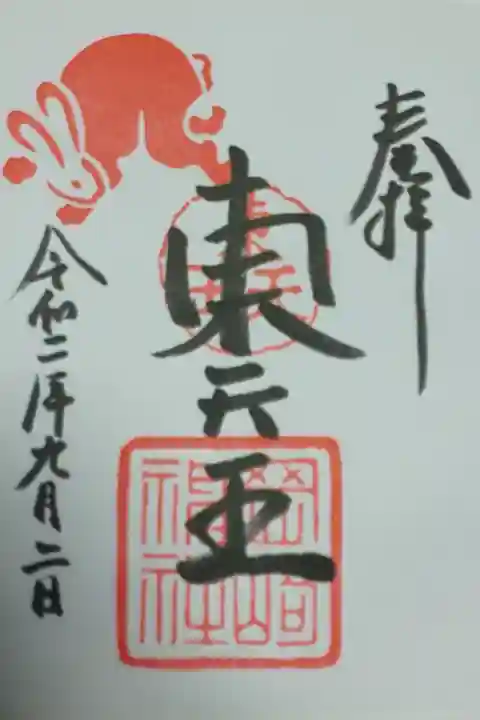 奉拝
東天王
岡﨑神社
令和二年九月二日